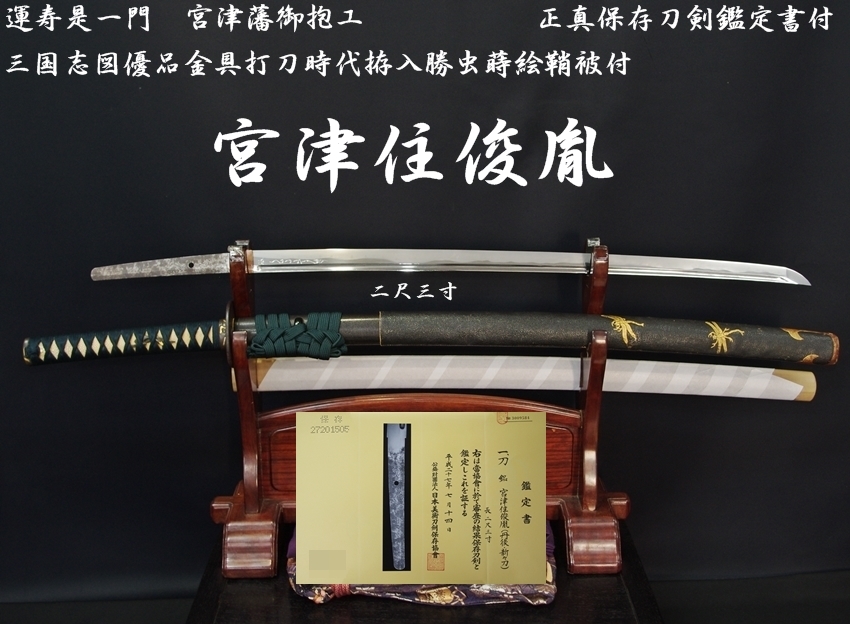 運寿是一門　宮津藩御抱工
正真保存刀剣鑑定書付
三国志図優品金具打刀時代拵入勝虫蒔絵鞘被付
宮津住俊胤
二尺三寸
保存
27201505
鑑定書
一、刀 銘 宮津住俊胤(再後新々刀)
長二尺三寸
右は當協會に於て審査の結果保存刀剣と
鑑定しこれを証する
平成二十七年七月十四日
公益財団法人日本美術刀剣保存協會